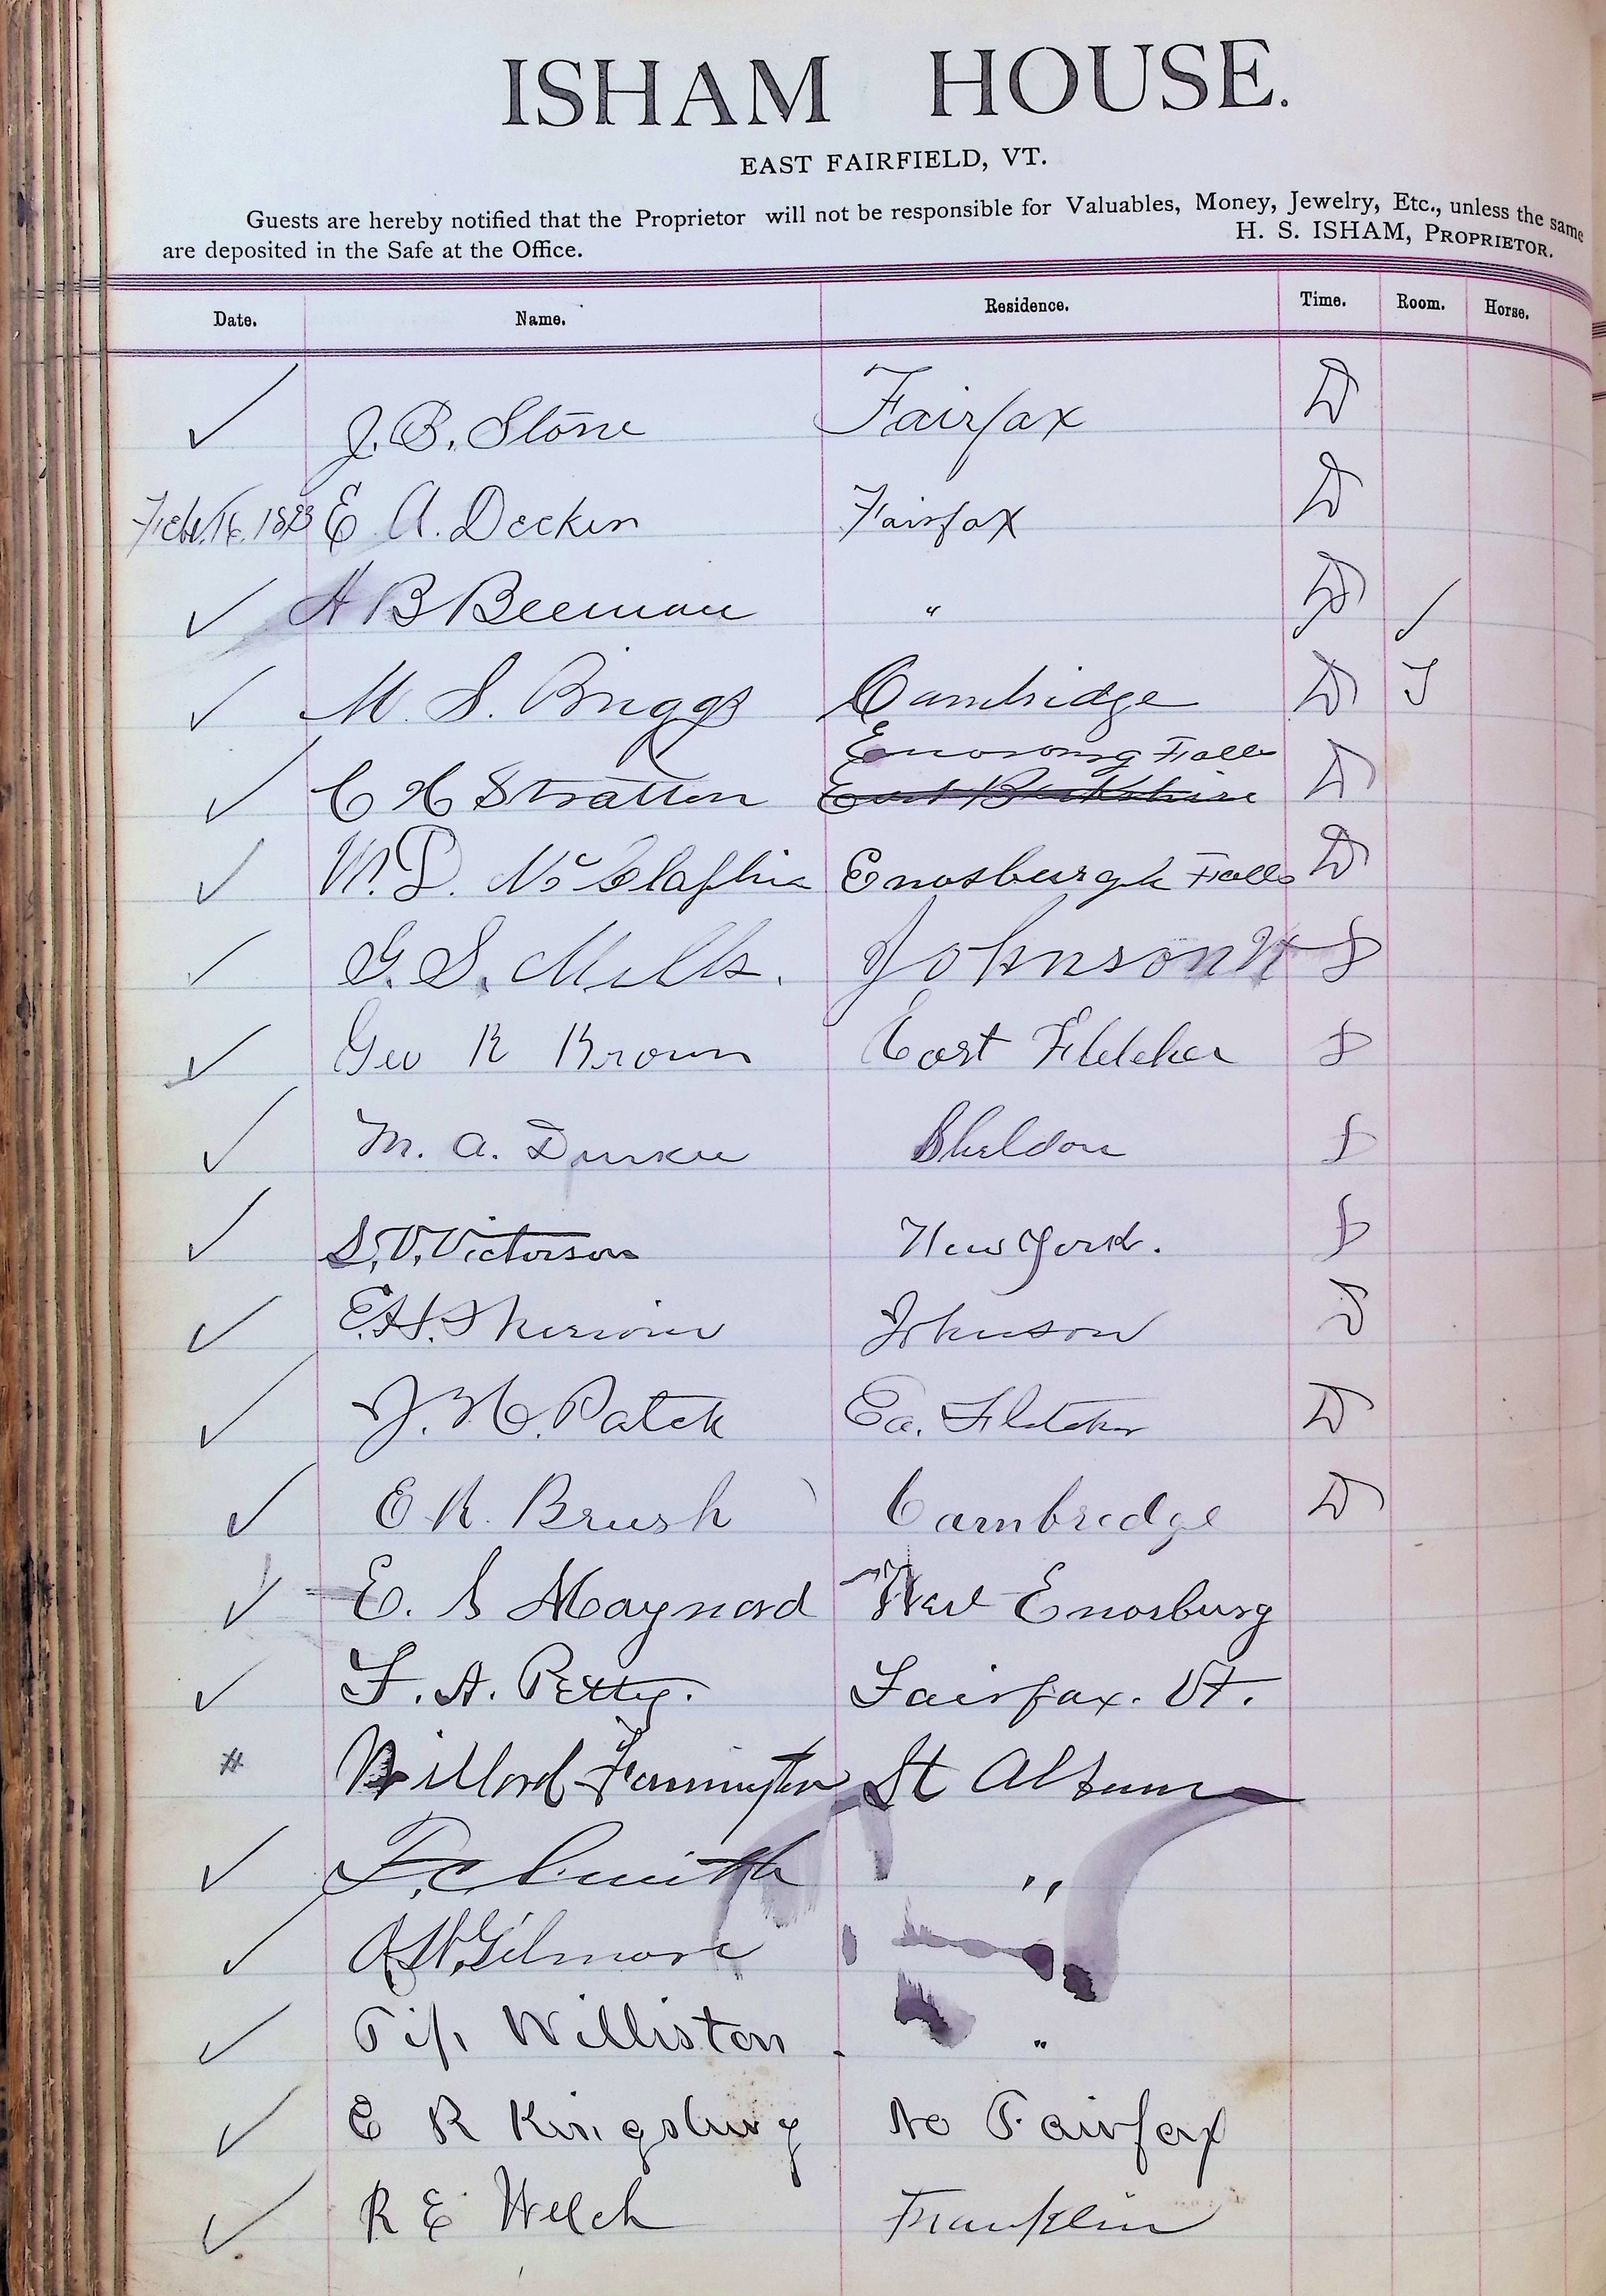 ISHAM HOUSE.
EAST FAIRFIELD, VT.
Guests are hereby notified that the Proprietor will not be responsible for Valuables, Money, Jewelry, Etc., unless the same
are deposited in the Safe at the Office.
H. S. ISHAM, PROPRIETOR.
Date. Name. Residence. Time. Room. Horse.
✓ J. B. Stone Fairfax D
Feb. 16, 1893 E A. Decker Fairfax D
✓ H B Beeman " D ✓
✓ M. S. Briggs Cambridge D
Falls
✓ C H Stratton East Berkshire D
✓ Enosburgh Falls D
✓ G. S. Mills. Johnson Vt
✓ Geo R Brown East Fletcher
✓ M. A. Durkee Sheldon
✓ S. V. Victorson New York.
✓ E. H. Sherwin Johnson
✓ J. H. Patch Ea. Fletcher D
✓ E R. Brush Cambridge D
✓ E. S Maynard West Enosburg
✓ F. A. Petty. Fairfax. Vt.
# Willard Farrington St Albans
✓ F. C. Smith "
✓ Gilmore
✓ Williston "
✓ E R Kingsbury No Fairfax
✓ R E Welch Franklin